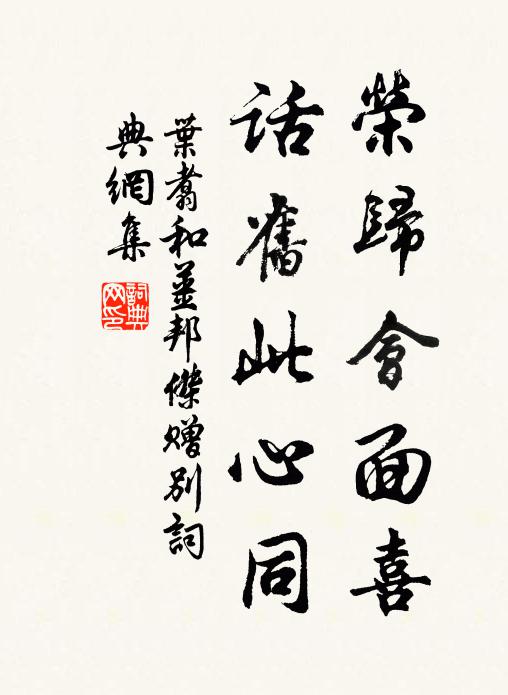 榮歸會面喜
話舊此心同
葉翥和姜邦傑贈別詞
典網集
詞典
网印